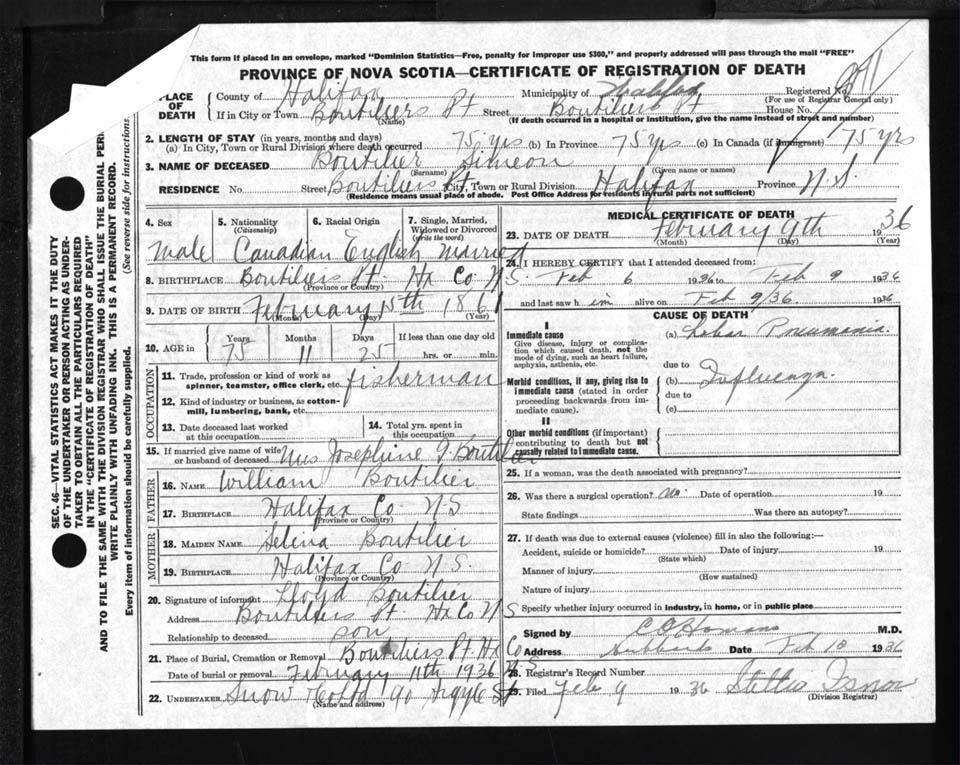 This form if placed in an envelope, marked "Dominion Statistics—Free, penalty for improper use $300," and properly addressed will pass through the mail "FREE"
PROVINCE OF NOVA SCOTIA—CERTIFICATE OF REGISTRATION OF DEATH
PLACE OF DEATH County of Halifax Municipality of Halifax Registered No.
(For use of Registrar General only)
If in City or Town Boutiliers Pt Street Boutiliers Pt House No.
(Name) (If death occurred in a hospital or institution, give the name instead of street and number)
2. LENGTH OF STAY (in years, months and days)
(a) In City, Town or Rural Division where death occurred 75 yrs (b) In Province 75 yrs (c) In Canada (if immigrant) 75 yrs
3. NAME OF DECEASED Boutilier Simeon
(Surname) (Given name or names)
RESIDENCE No. Street Boutiliers Pt City, Town or Rural Division Halifax Province N.S.
(Residence means usual place of abode. Post Office Address for residents in rural parts not sufficient)
4. Sex 5. Nationality (Citizenship) 6. Racial Origin 7. Single, Married, Widowed or Divorced (write the word)
Male Canadian English Married
8. BIRTHPLACE Boutiliers Pt. Hx Co N S
(Province or Country)
9. DATE OF BIRTH February 15th 1861
(Month) (Day) (Year)
10. AGE in Years Months Days If less than one day old
75 11 25 hrs. or min.
OCCUPATION
11. Trade, profession or kind of work as spinner, teamster, office clerk, etc. fisherman
12. Kind of industry or business, as cotton-mill, lumbering, bank, etc.
13. Date deceased last worked at this occupation
14. Total yrs. spent in this occupation
15. If married give name of wife or husband of deceased Mrs Josephine J. Boutilier
FATHER
16. NAME William Boutilier
17. BIRTHPLACE Halifax Co N S
(Province or Country)
MOTHER
18. MAIDEN NAME Selina Boutilier
19. BIRTHPLACE Halifax Co N S.
(Province or Country)
20. Signature of informant Lloyd Boutilier
Address Boutiliers Pt. Hx Co N S
Relationship to deceased son
21. Place of Burial, Cremation or Removal Boutiliers Pt Hx Co N S
Date of burial or removal February 11th 1936
22. UNDERTAKER Snow & Co Ltd 90 Argyle St
(Name and address)
MEDICAL CERTIFICATE OF DEATH
23. DATE OF DEATH February 9th 1936
(Month) (Day) (Year)
24. I HEREBY CERTIFY that I attended deceased from:
Feb 6 1936 to Feb 9 1936
and last saw him alive on Feb 9/36. 1936
CAUSE OF DEATH
I
Immediate cause
Give disease, injury or complication which caused death, not the mode of dying, such as heart failure, asphyxia, asthenia, etc.
(a) Lobar Pneumonia.
due to
Morbid conditions, if any, giving rise to immediate cause (stated in order proceeding backwards from immediate cause).
(b) Influenza.
due to
(c)
II
Other morbid conditions (if important) contributing to death but not causally related to immediate cause.
25. If a woman, was the death associated with pregnancy?
26. Was there a surgical operation? No. Date of operation 19
State findings Was there an autopsy?
27. If death was due to external causes (violence) fill in also the following:—
Accident, suicide or homicide? Date of injury 19
(State which)
Manner of injury
(How sustained)
Nature of injury
Specify whether injury occurred in industry, in home, or in public place
Signed by M.D.
Address Hubbards Date Feb 10 1936
28. Registrar's Record Number
29. Filed Feb 9 1936
(Division Registrar)
SEC. 46—VITAL STATISTICS ACT MAKES IT THE DUTY
OF THE UNDERTAKER OR PERSON ACTING AS UNDER-
TAKER TO OBTAIN ALL THE PARTICULARS REQUIRED
IN THE "CERTIFICATE OF REGISTRATION OF DEATH"
AND TO FILE THE SAME WITH THE DIVISION REGISTRAR WHO SHALL ISSUE THE BURIAL PER
WRITE PLAINLY WITH UNFADING INK. THIS IS A PERMANENT RECORD.
Every item of information should be carefully supplied. (See reverse side for instructions.